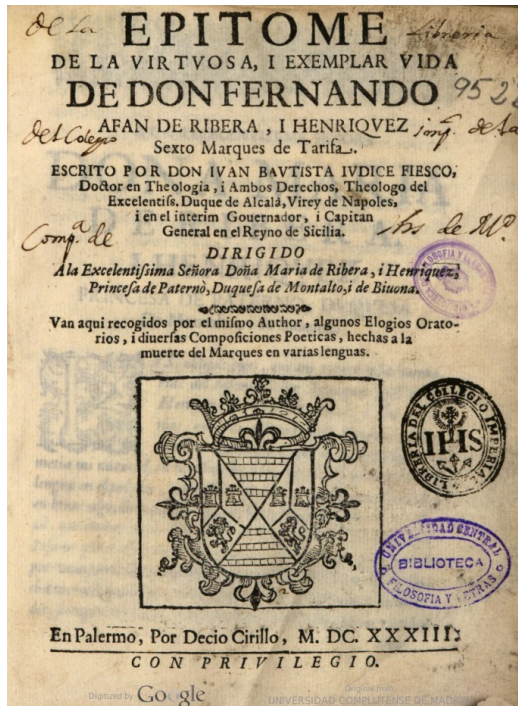 de la Libreria
EPITOME
DE LA VIRTVOSA, I EXEMPLAR VIDA
DE DON FERNANDO
952
AFAN DE RIBERA, I HENRIQVEZ
del Colegio imp. de la
Sexto Marques de Tarifa.
ESCRITO POR DON IVAN BAVTISTA IVDICE FIESCO,
Doctor en Theologia, i Ambos Derechos, Theologo del
Excelentiss. Duque de Alcalá, Virey de Napoles,
i en el interim Gouernador, i Capitan
General en el Reyno de Sicilia.
Comp.ª de de M.ᵈ
DIRIGIDO
A la Excelentissima Señora Doña Maria de Ribera, i Henriquez,
Princesa de Paternò, Duquesa de Montalto, i de Biuona.
Van aqui recogidos por el mismo Author, algunos Elogios Orato-
rios, i diuersas Composiciones Poeticas, hechas a la
muerte del Marques en varias lenguas.
LIBRERIA DEL COLLEGIO IMPERIAL
IHS
UNIVERSIDAD CENTRAL
BIBLIOTECA
FILOSOFIA Y LETRAS
En Palermo, Por Decio Cirillo, M. DC. XXXIII.
CON PRIVILEGIO.
Digitized by Google
Original from
UNIVERSIDAD COMPLUTENSE DE MADRID